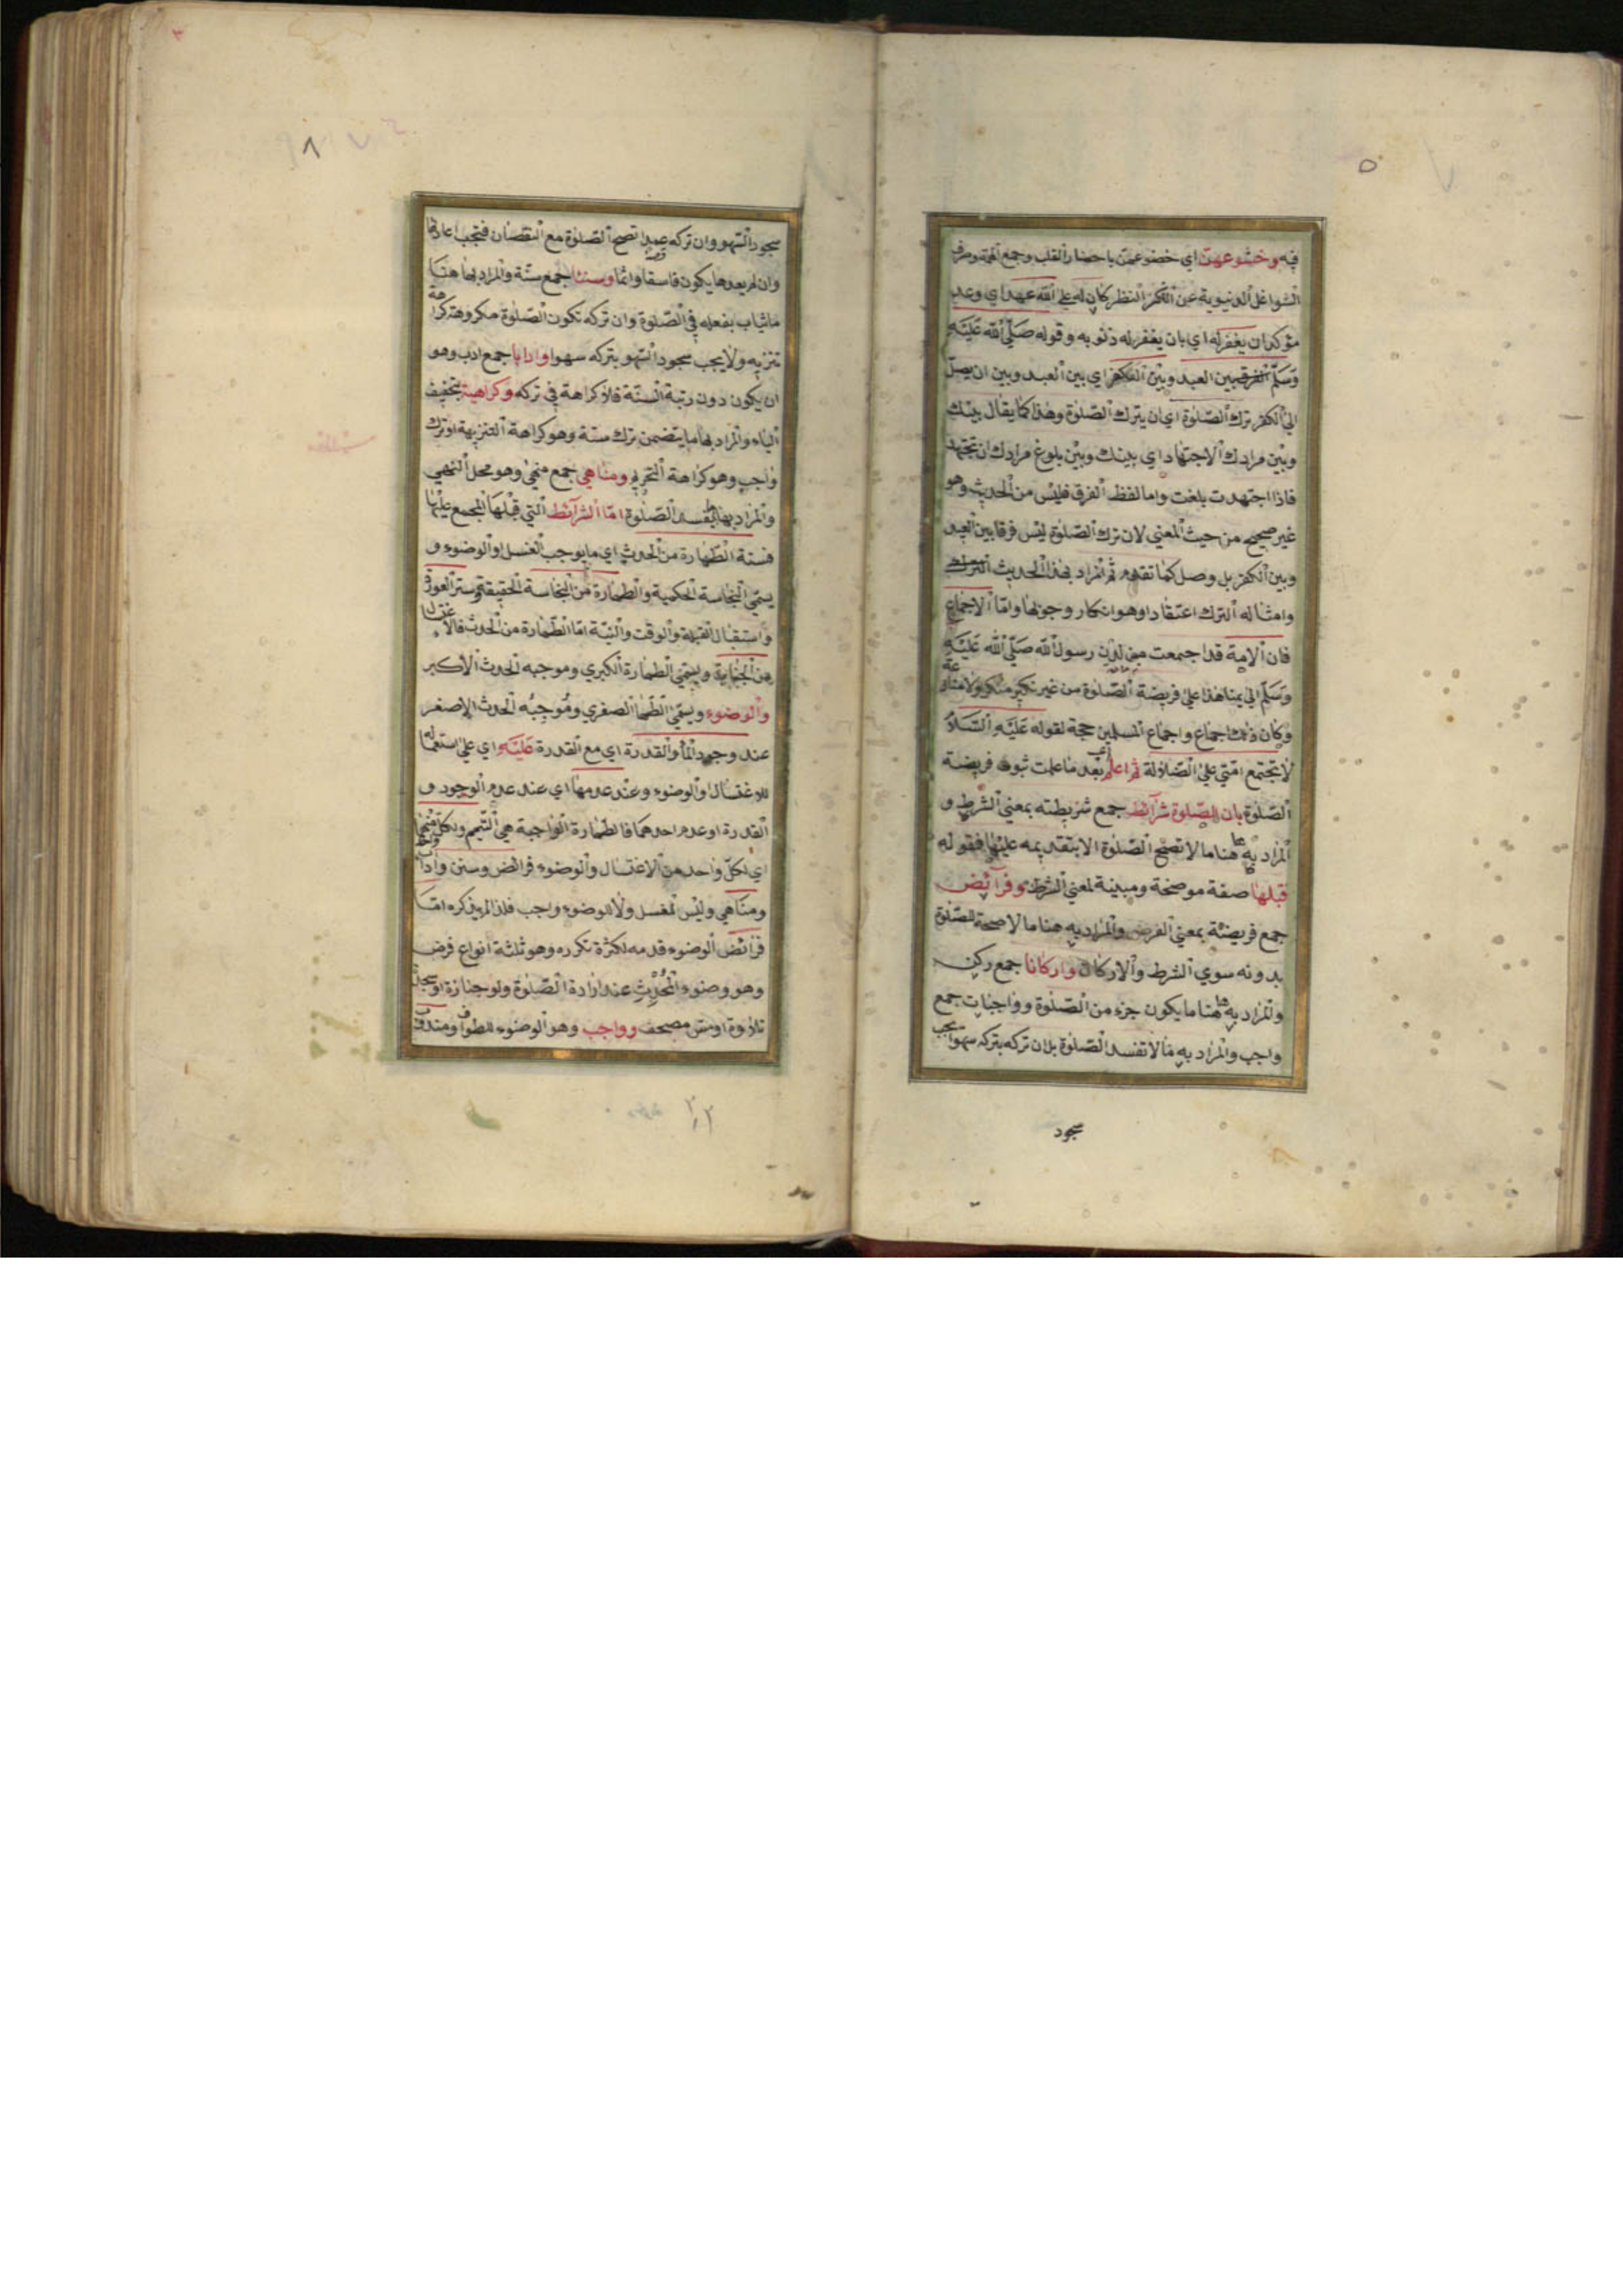 فيه وخشوعهن اي خضوعهن باحضار القلب وجمع الهمة وصرف
الشواغل الدنيوية عن الفكر النظر كان له علي الله عهد اي وعد
مؤكد ان يغفر له اي بان يغفر له ذنوبه وقوله صلي الله عليه
وسلم الفرق بين العبد وبين الكفر اي بين العبد وبين ان يصل
الي الكفر ترك الصلوة اي ان يترك الصلوة وهذا كما يقال بينك
وبين مرادك الاجتهاد اي بينك وبين بلوغ مرادك ان تجتهد
فاذا اجتهدت بلغت واما لفظ الفرق فليس من الحديث وهو
غير صحيح من حيث المعني لان ترك الصلوة ليس فرقا بين العبد
وبين الكفر بل وصل كما تقدم ثم المراد بهذا الحديث الترك
وامثاله الترك اعتقادا وهو انكار وجوبها واما الاجماع
فان الامة قد اجتمعت من لدن رسول الله صلي الله عليه
وسلم الي يمنا هذا علي فريضة الصلوة من غير نكير منكر ولا منازعة
وكان ذلك اجماع واجماع المسلمين حجة لقوله عليه السلام
لا يجتمع امتي علي الضلالة ثم اعلم اي بعد ما علمت ثبوت فريضة
الصلوة بان للصلوة شرائط جمع شريطته بمعني الشرط و
المراد بها هنا ما لا تصح الصلوة الا بتقديمه عليها فقوله
قبلها صفة موضحة ومبينة لمعني الشرط وفرائض
جمع فريضة بمعني الفرض والمراد به هنا ما لا صحة للصلوة
بدونه سوي الشرط والاركان واركانا جمع ركن
والمراد بها هنا ما يكون جزء من الصلوة وواجبات جمع
واجب والمراد به ما لا تفسد الصلوة بل ان تركه بتركه سهوا يجب
سجود
٨
سجود السهو وان تركه عمدا تصح الصلوة مع النقصان فتجب اعادتها
وان لم يعدها يكون فاسقا واثما وسننا جمع سنة والمراد بها هنا
ما يثاب بفعله في الصلوة وان تركه تكون الصلوة مكروهة كراهة
تنزيه ولا يجب سجود السهو بتركه سهوا وادابا جمع ادب وهو
ان يكون دون رتبة السنة فلا كراهة في تركه وكراهية بتخفيف
الياء والمراد بها ما يتضمن ترك سنة وهو كراهة التنزيهة او ترك
واجب وهو كراهة التحريم ومناهي جمع منهي وهو محل النهي
والمراد بها ما يفسد الصلوة اما الشرائط التي قبلها المجمع عليها
فستة الطهارة من الحدث اي ما يوجب الغسل او الوضوء و
يسمي النجاسة الحكمية والطهارة من النجاسة الحقيقة وستر العورة
واستقبال القبلة والوقت والنية اما الطهارة من الحدث فالاغتسال
من الجنابة ويسمي الطهارة الكبري وموجبه الحدث الاكبر
والوضوء ويسمي الطها الصغري وموجبه الحدث الاصغر
عند وجود الما والقدرة اي مع القدرة عليه اي علي استعماله
للاغتسال او الوضوء وعند عدمها اي عند عدم الوجود و
القدرة او عدم احدهما فالطهارة الواجبة هي التيمم ولكل منهما
اي لكل واحد من الاغتسال والوضوء فرائض وسنن واداب
ومناهي وليس للغسل ولا للوضوء واجب فلذا لم يذكره اما
فرائض الوضوء قدمه لكثرة تكرره وهو ثلثة انواع فرض
وهو وضوء المحدث عند ارادة الصلوة ولو جنازة او سجدة
تلاوة او مس مصحف وواجب وهو الوضوء للطواف ومندوب